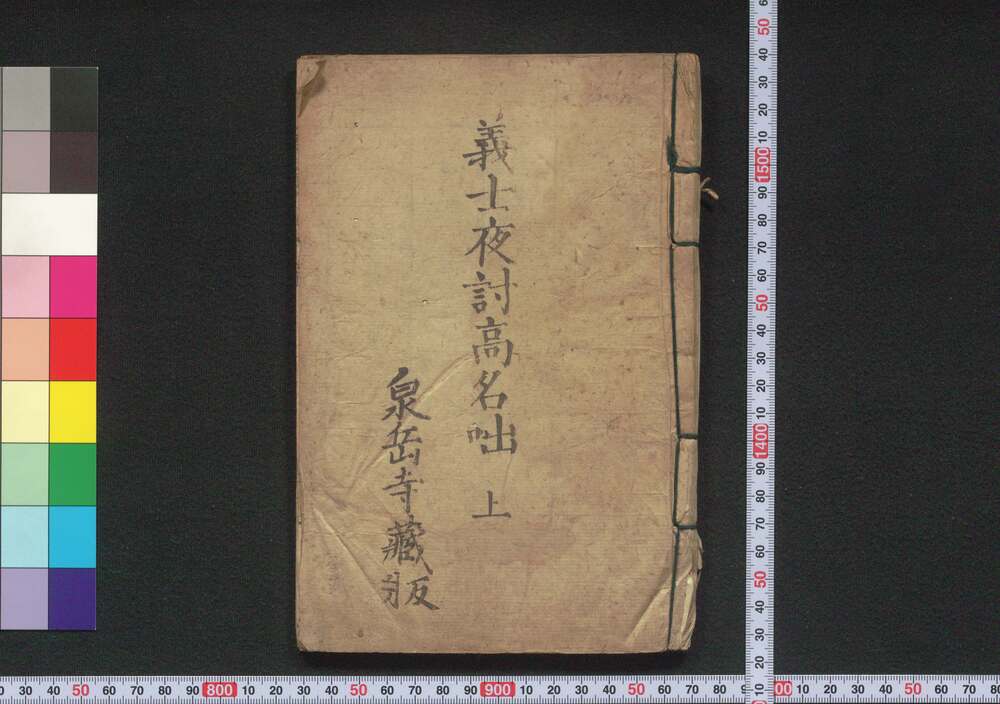 義士夜討高名咄 上
泉岳寺藏版
50
40
30
20
10
1500
90
80
70
60
50
40
30
20
10
1400
90
80
70
60
50
40
30
20
10
30 40 50 60 70 80 90 800 10 20 30 40 50 60 70 80 90 900 10 20 30 40 50 60 70 80 10 20 30 40 50 60 70 80